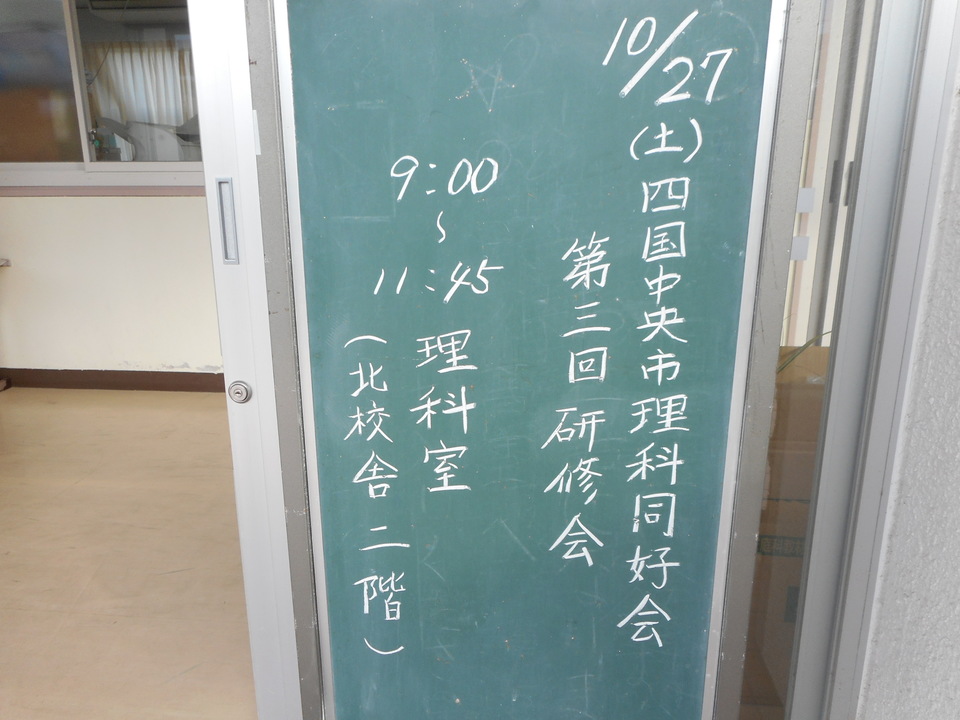 10/27(土)四国中央市理科同好会
第三回 研修会
9:00
〜
11:45
理科室
(北校舎 二階)